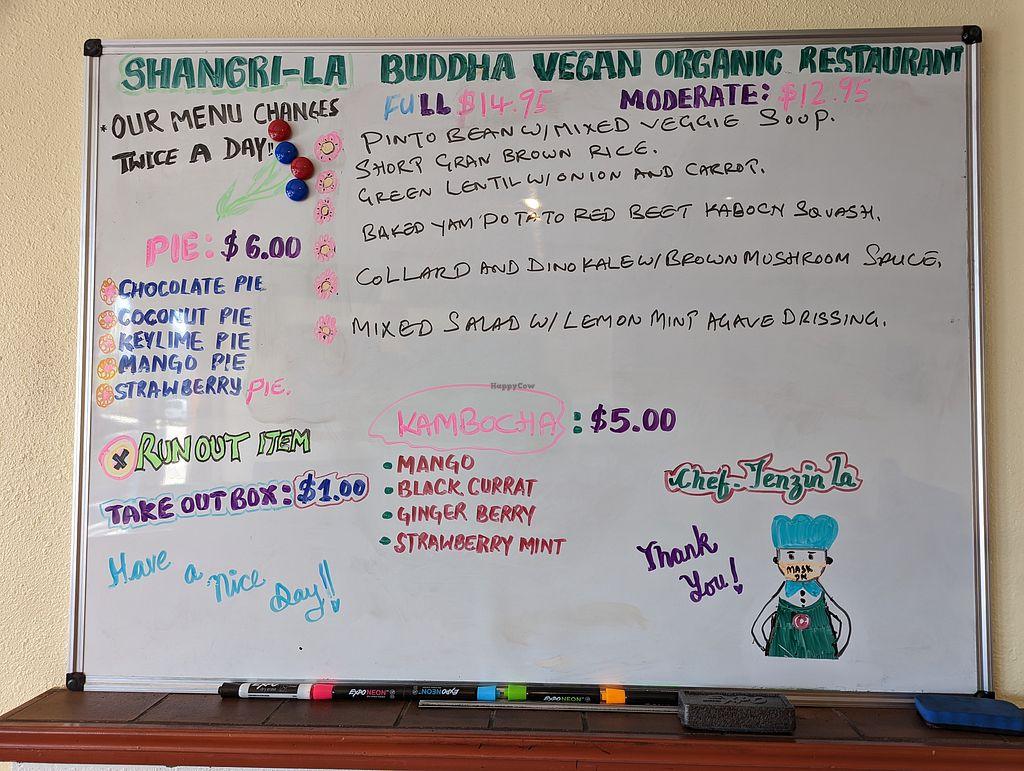 SHANGRI-LA BUDDHA VEGAN ORGANIC RESTAURANT
* OUR MENU CHANGES
TWICE A DAY!!
FULL $14.95 MODERATE: $12.95
PINTO BEAN W/MIXED VEGGIE SOUP.
SHORT GRAN BROWN RICE.
GREEN LENTIL W/ONION AND CARROT.
BAKED YAM POTATO RED BEET KABOCN SQUASH.
COLLARD AND DINO KALE W/BROWN MUSHROOM SAUCE.
MIXED SALAD W/LEMON MINT AGAVE DRISSING.
PIE: $6.00
CHOCOLATE PIE
COCONUT PIE
KEYLIME PIE
MANGO PIE
STRAWBERRY PIE.
X RUN OUT ITEM
TAKE OUT BOX: $1.00
Have a nice Day!!
HappyCow
KAMBOCHA: $5.00
• MANGO
• BLACK CURRAT
• GINGER BERRY
• STRAWBERRY MINT
Chef. Tenzin La
Thank
You!
MASK
ON
EXPO NEON
EXPO NEON
EXPO NEON